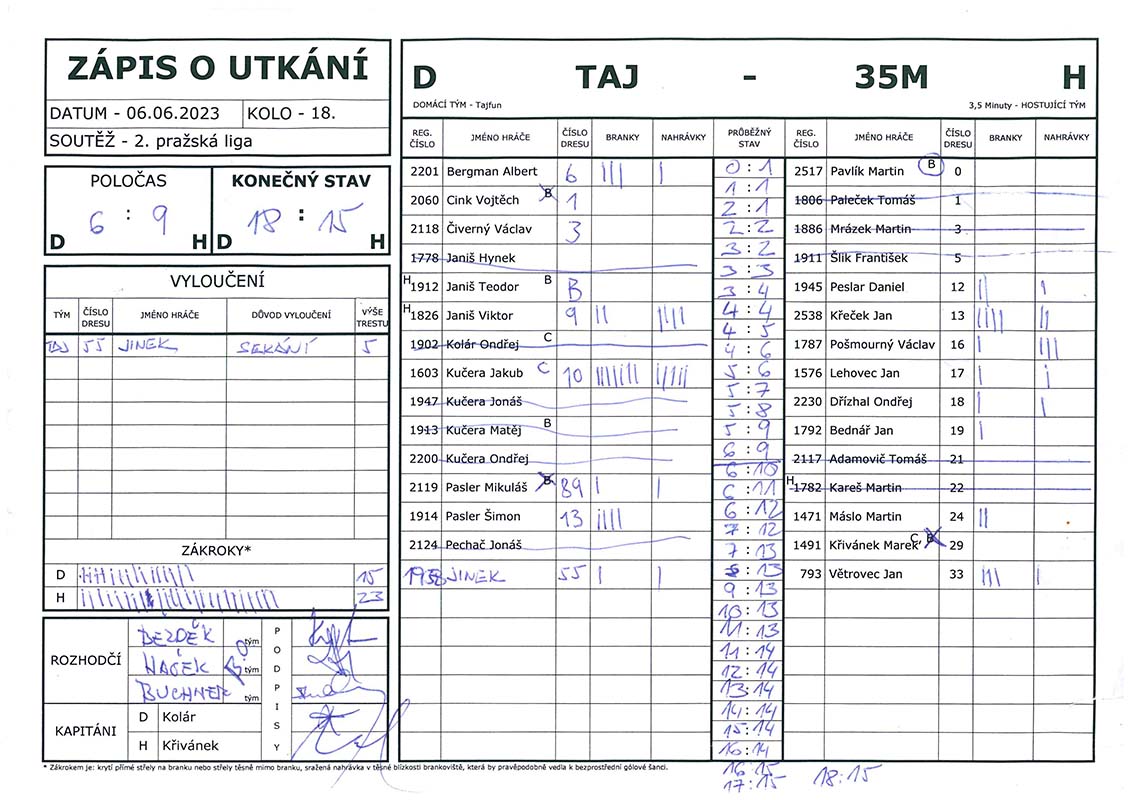 ZÁPIS O UTKÁNÍ
DATUM - 06.06.2023 KOLO - 18.
SOUTĚŽ - 2. pražská liga
POLOČAS KONEČNÝ STAV
6 : 9 18 : 15
D H D H
VYLOUČENÍ
TÝM ČÍSLO DRESU JMÉNO HRÁČE DŮVOD VYLOUČENÍ VÝŠE TRESTU
TAJ 55 JINEK SEKÁNÍ 5
ZÁKROKY*
D 15
H 23
ROZHODČÍ
BEZDĚK tým
HAČEK tým
BUCHNER tým
PODPISY
KAPITÁNI
D Kolár
H Křivánek
D TAJ - 35M H
DOMÁCÍ TÝM - Tajfun 3,5 Minuty - HOSTUJÍCÍ TÝM
REG. ČÍSLO JMÉNO HRÁČE ČÍSLO DRESU BRANKY NAHRÁVKY PRŮBĚŽNÝ STAV REG. ČÍSLO JMÉNO HRÁČE ČÍSLO DRESU BRANKY NAHRÁVKY
2201 Bergman Albert 6 III I
2060 Cink Vojtěch B 1
2118 Čiverný Václav 3
1778 Janiš Hynek
H 1912 Janiš Teodor B B
H 1826 Janiš Viktor 9 II IIII
1902 Kolár Ondřej C
1603 Kučera Jakub C 10 IIIIIII IIIII
1947 Kučera Jonáš
1913 Kučera Matěj B
2200 Kučera Ondřej
2119 Pasler Mikuláš B 89 I I
1914 Pasler Šimon 13 IIII
2124 Pechač Jonáš
1958 JINEK 55 I I
0:1
1:1
2:1
2:2
3:2
3:3
3:4
4:4
4:5
4:6
5:6
5:7
5:8
5:9
6:9
6:10
6:11
6:12
7:12
7:13
:13
9:13
10:13
11:13
11:14
12:14
13:14
14:14
15:14
16:14
16:15
17:15 18:15
2517 Pavlík Martin B 0
1806 Paleček Tomáš 1
1886 Mrázek Martin 3
1911 Šlik František 5
1945 Peslar Daniel 12 II I
2538 Křeček Jan 13 IIIII II
1787 Pošmourný Václav 16 I III
1576 Lehovec Jan 17 I I
2230 Dřízhal Ondřej 18 I I
1792 Bednář Jan 19 I
2117 Adamovič Tomáš 21
H 1782 Kareš Martin 22
1471 Máslo Martin 24 II
1491 Křivánek Marek C B 29
793 Větrovec Jan 33 III I
* Zákrokem je: krytí přímé střely na branku nebo střely těsně mimo branku, sražená nahrávka v těsné blízkosti brankoviště, která by pravěpodobně vedla k bezprostřední gólové šanci.